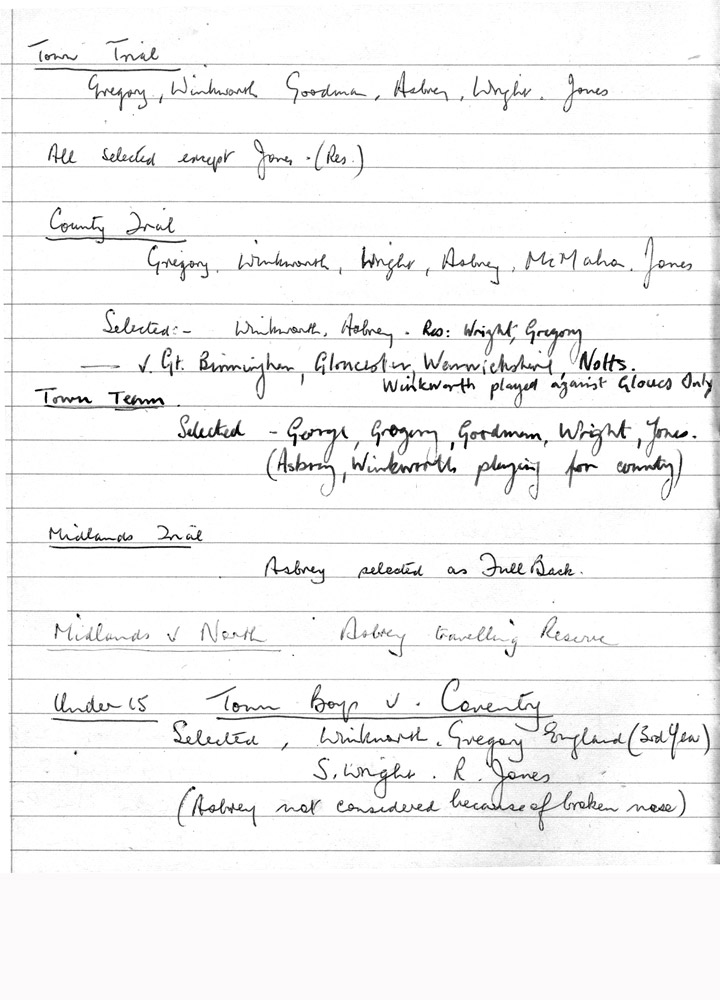 Town Trial
Gregory, Winkworth Goodman, Asbrey, Wright. Jones
All selected except Jones - (Res.)
County Trial
Gregory. Winkworth, Wright, Asbrey, McMahon. Jones
Selected:- Winkworth, Asbrey - Res: Wright, Gregory
v. Gt. Birmingham, Gloucester, Warwickshire, Notts.
Winkworth played against Gloucs Only
Town Team.
Selected - George, Gregory, Goodman, Wright, Jones.
(Asbrey, Winkworth playing for county)
Midlands Trial
Asbrey selected as Full Back.
Midlands v North Asbrey travelling Reserve
Under 15 Town Boys v. Coventry
Selected, Winkworth. Gregory England (3rd Year)
S. Wright. R. Jones
(Asbrey not considered because of broken nose)